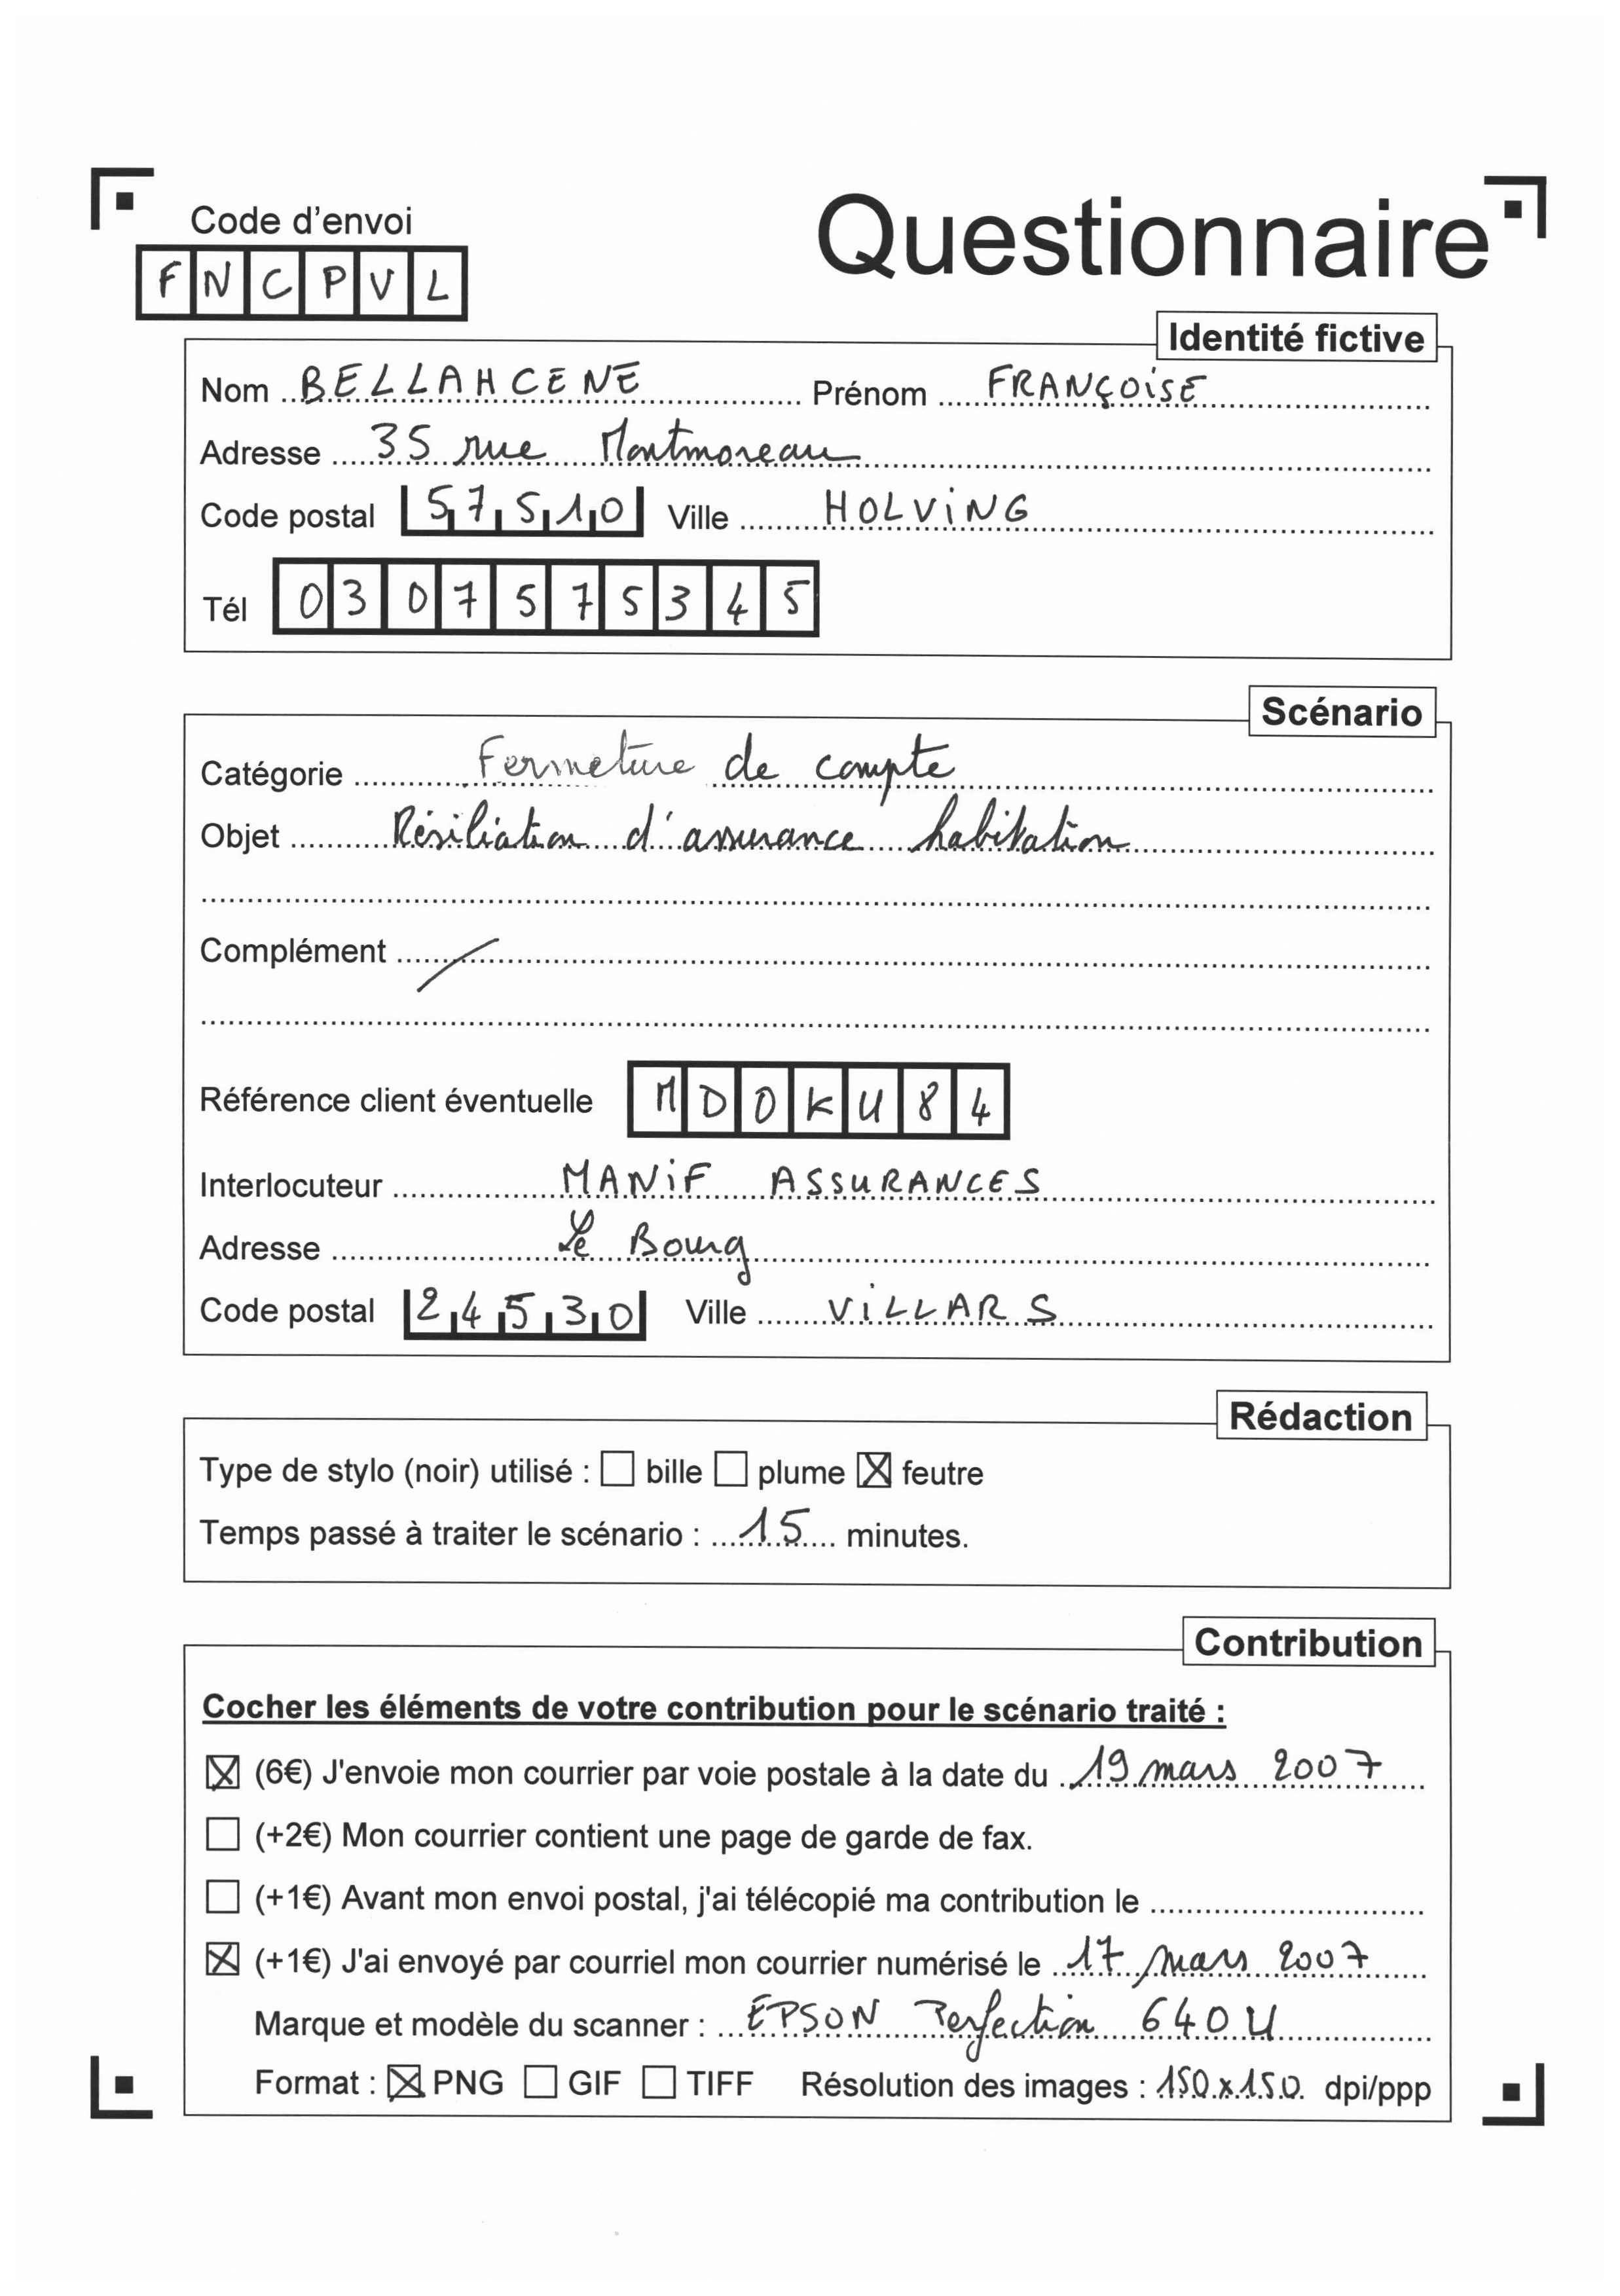 Code d'envoi
Questionnaire
FNCPVL
Identité fictive
Nom BELLAHCENE Prénom FRANÇOISE
Adresse 35 rue Montmoreau
Code postal 57510 Ville HOLVING
Tél 0307575345
Scénario
Catégorie Fermeture de compte
Objet Résiliation d'assurance habitation
Complément /
Référence client éventuelle MDOKU84
Interlocuteur MANIF ASSURANCES
Adresse Le Bourg
Code postal 24530 Ville VILLARS
Rédaction
Type de stylo (noir) utilisé : ☐ bille ☐ plume ☒ feutre
Temps passé à traiter le scénario : 15 minutes.
Contribution
Cocher les éléments de votre contribution pour le scénario traité :
☒ (6€) J'envoie mon courrier par voie postale à la date du 19 mars 2007
☐ (+2€) Mon courrier contient une page de garde de fax.
☐ (+1€) Avant mon envoi postal, j'ai télécopié ma contribution le
☒ (+1€) J'ai envoyé par courriel mon courrier numérisé le 17 mars 2007
Marque et modèle du scanner : EPSON Perfection 640U
Format : ☒ PNG ☐ GIF ☐ TIFF Résolution des images : 150x150 dpi/ppp